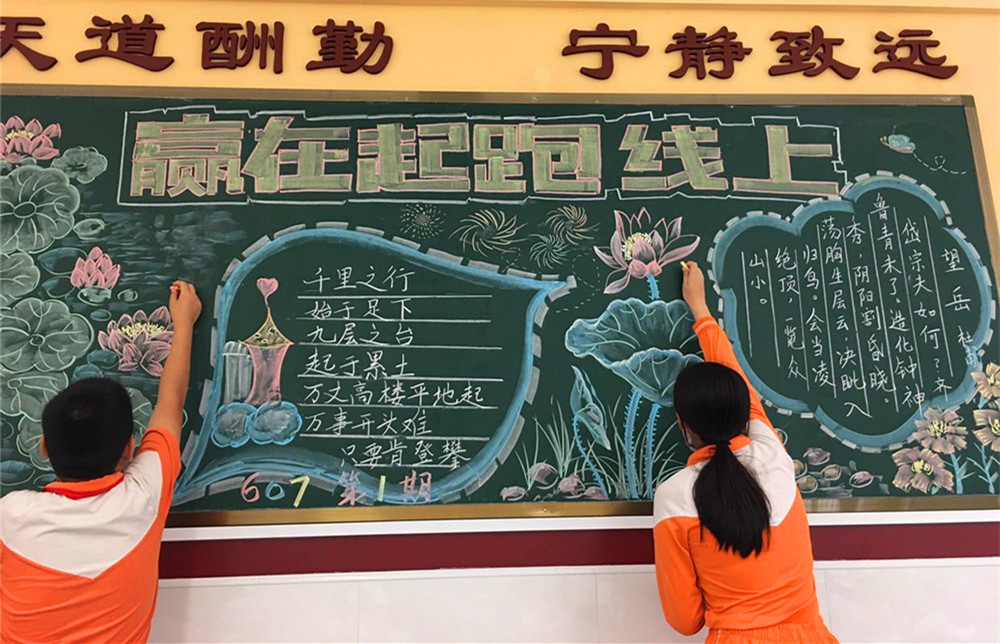 天道酬勤 宁静致远
赢在起跑线上
千里之行
始于足下
九层之台
起于累土
万丈高楼平地起
万事开头难
只要肯登攀
607 第1期
望岳 杜
岱宗夫如何?齐
鲁青未了。造化钟神
秀,阴阳割昏晓。
荡胸生层云,决眦入
归鸟。会当凌
绝顶,一览众
山小。